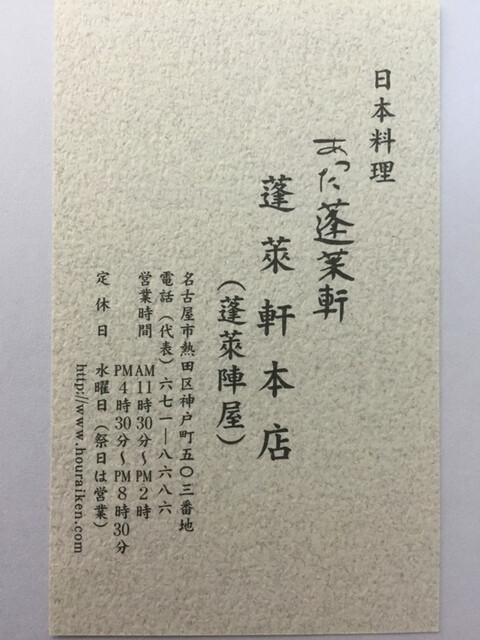 日本料理
あつた蓬莱軒
蓬萊軒本店
（蓬萊陣屋）
名古屋市熱田区神戸町五〇三番地
電話（代表）六七一―八六八六
営業時間 AM11時30分～PM2時
PM4時30分～PM8時30分
定休日 水曜日（祭日は営業）
http://www.houraiken.com